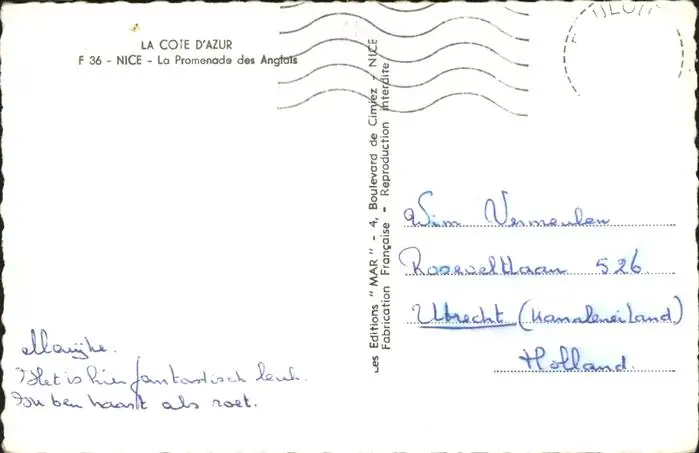 LA COTE D'AZUR
F 36 - NICE - La Promenade des Anglais
Les Editions "MAR" - 4, Boulevard de Cimiez - NICE
Fabrication Française - Reproduction interdite
Wim Vermeulen
Rooseveltlaan 526
Utrecht (Kanaleneiland)
Holland.
Marijke.
Het is hier fantastisch leuk.
Ik ben haast als roet.